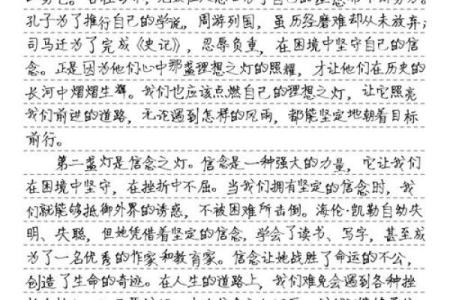 孔子为了推行自己的学说，周游列国，虽历经磨难却从未放弃；
司马迁为了完成《史记》，忍辱负重，在困境中坚守自己的信
念。正是因为他们心中那盏理想之灯的照耀，才让他们在历史的
长河中熠熠生辉。我们也应该点燃自己的理想之灯，让它照亮
我们前进的道路，无论遇到怎样的风雨，都能坚定地朝着目标
前行。
第二盏灯是信念之灯。信念是一种强大的力量，它让我们
在困境中坚守，在挫折中不屈。当我们拥有坚定的信念时，我
们就能够抵御外界的诱惑，不被困难所击倒。海伦·凯勒自幼失
明、失聪，但她凭借着坚定的信念，学会了读书、写字，甚至成
为了一名优秀的作家和教育家。信念让她战胜了命运的不公，
创造了生命的奇迹。在人生的道路上，我们难免会遇到各种挫